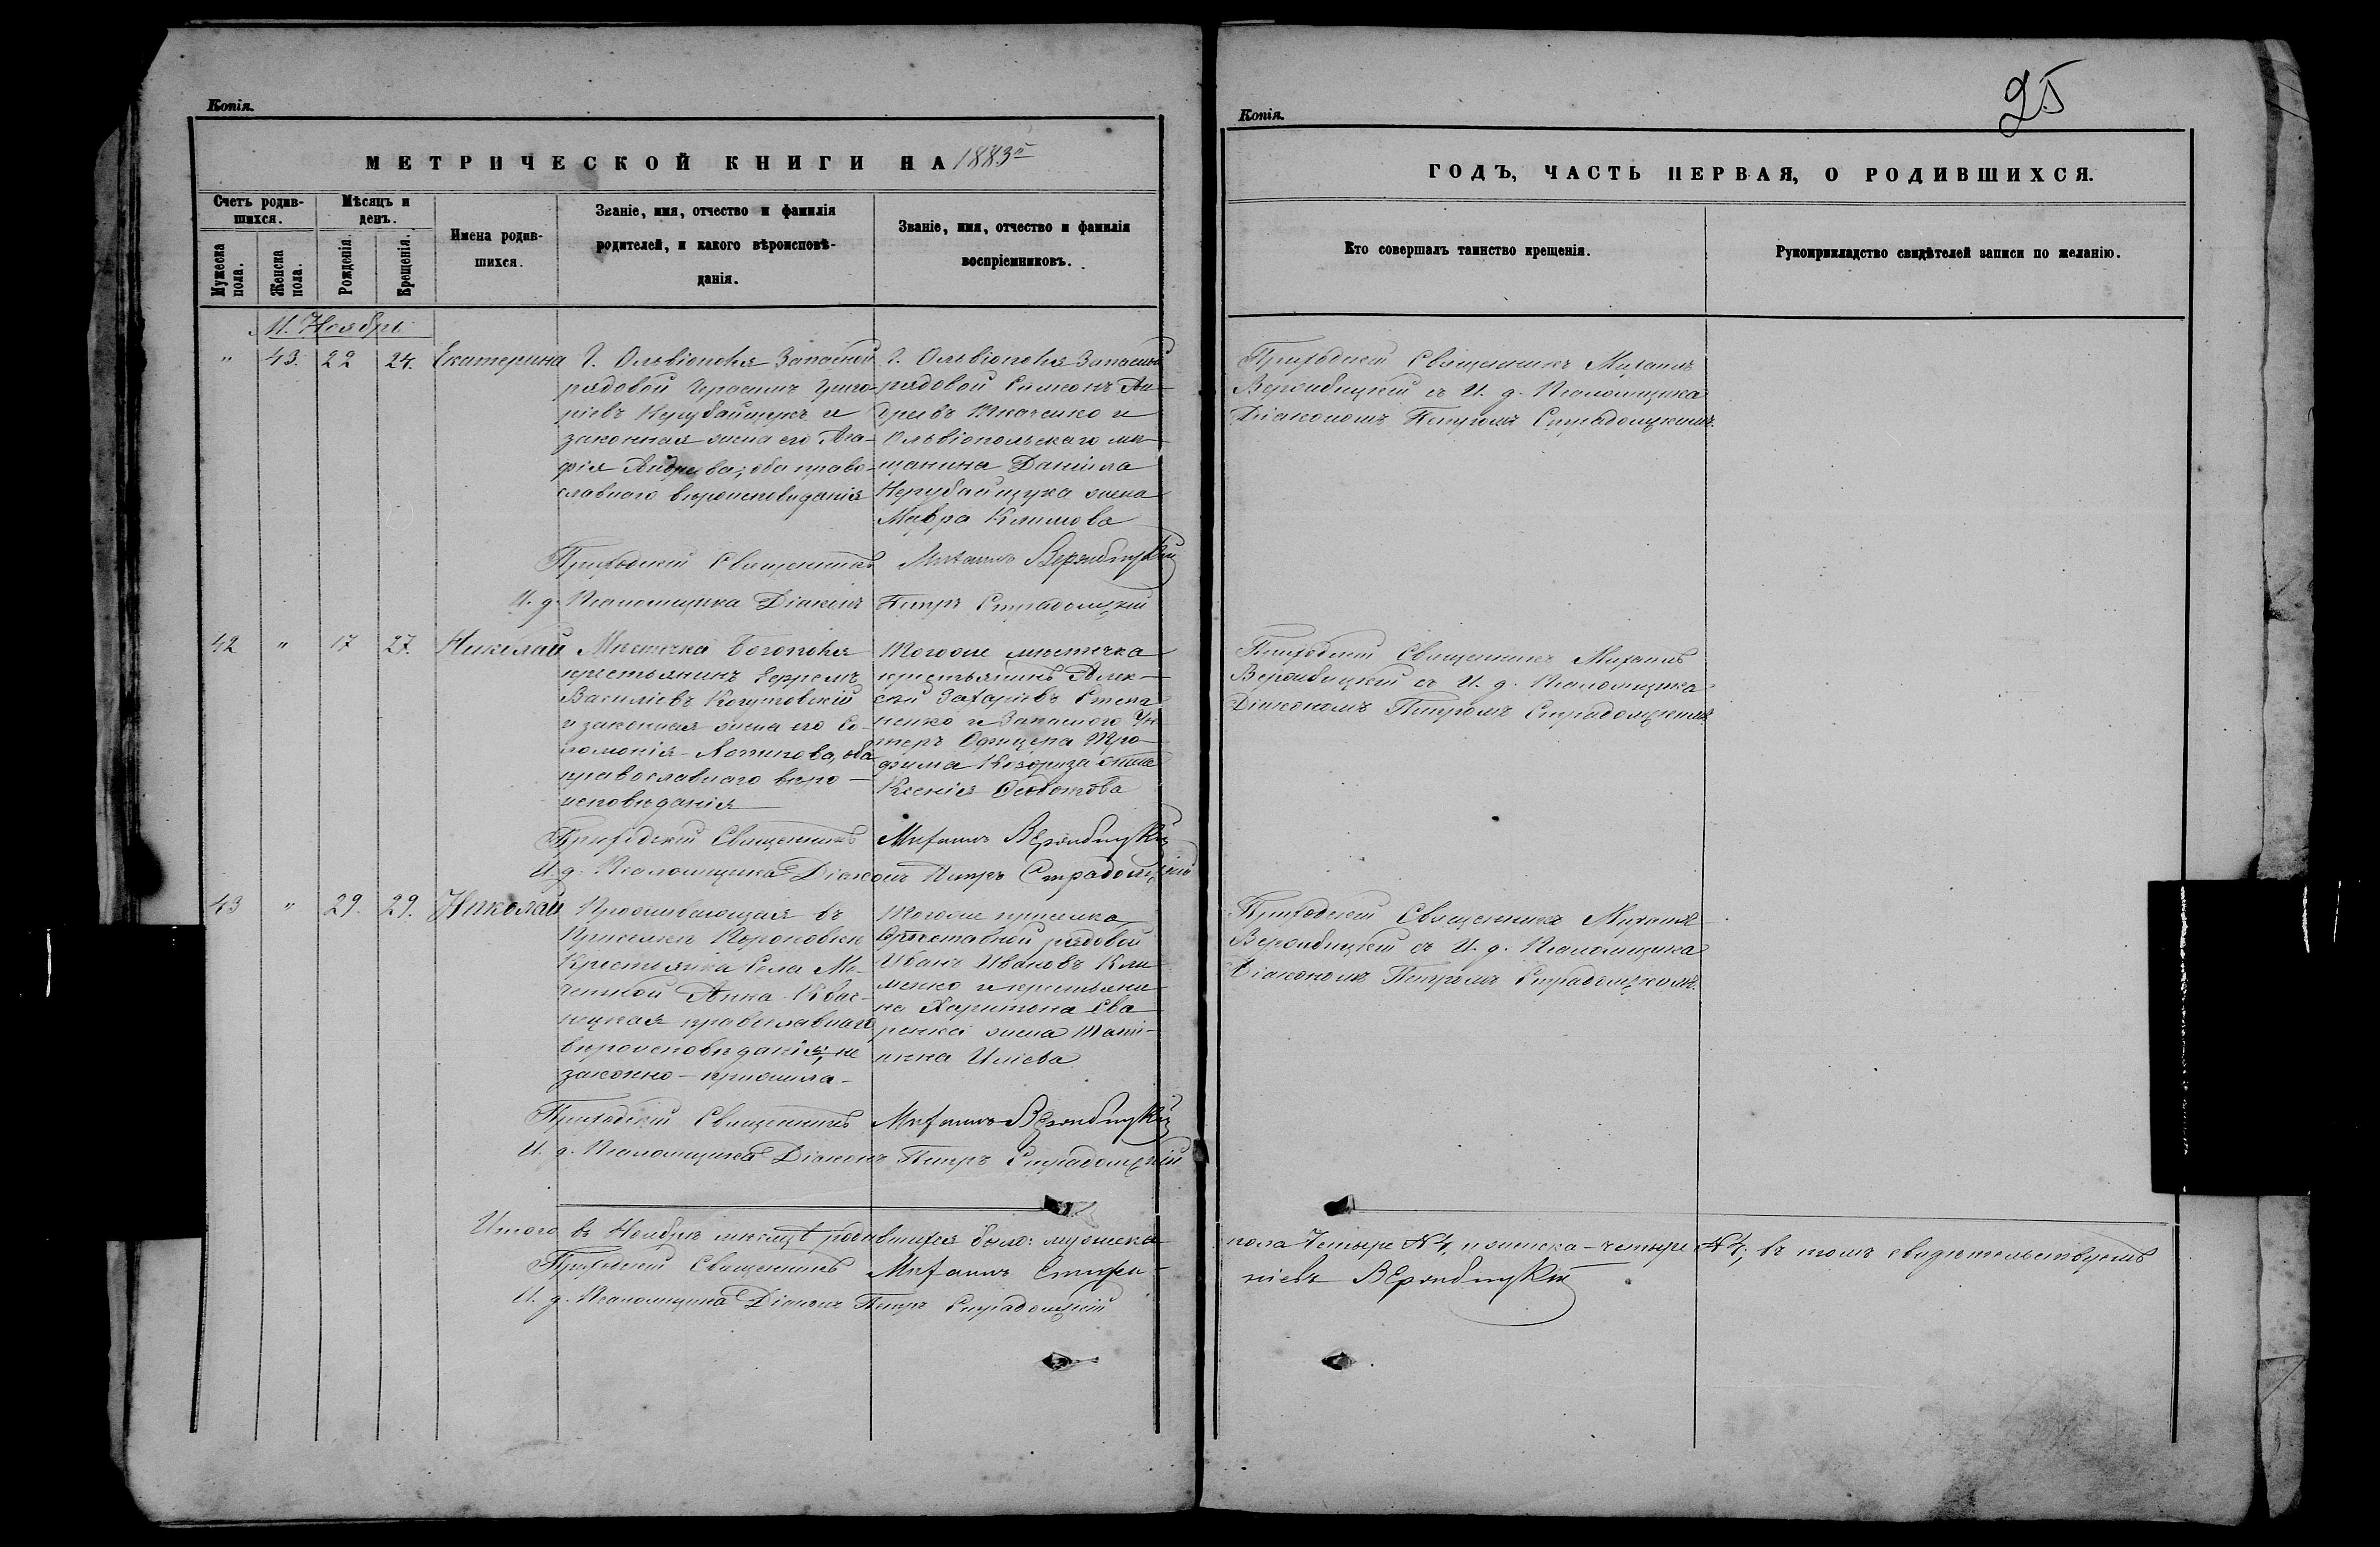 Копія.
МЕТРИЧЕСКОЙ КНИГИ НА 1883й
Счетъ родив-
шихся.
Мѣсяцъ и
день.
Мужеска
пола.
Женска
пола.
Рожденія.
Крещенія.
Имена родив-
шихся.
Званіе, имя, отчество и фамилія
родителей, и какого вѣроисповѣ-
данія.
Званіе, имя, отчество и фамилія
воспріемниковъ.
М. Ноябрь
" 43. 22 24. Екатерина
Г. Ольвіополя Запасной
рядовой Герасимъ Григо-
ріевъ Нерубайщукъ и
законная жена его Ага-
фія Андреева, оба право-
славнаго вѣроисповѣданія
Г. Ольвіополя Запасной
рядовой Симеонъ Ан-
дреевъ Ткаченко и
Ольвіопольскаго мѣ-
щанина Даніила
Нерубайщука жена
Мавра Климова
Приходскій Священникъ Михаилъ Вержбицкій
И. д. Псаломщика Діаконъ Петръ Страдомскій
42 " 17 27. Николай
Мѣстечка Богополя
крестьянинъ Ефремъ
Василіевъ Когутовскій
и законная жена его Со-
ломонія Логинова, оба
православнаго вѣро-
исповѣданія
Тогоже мѣстечка
крестьянинъ Алек-
сѣй Захаріевъ Степа-
ненко и Запасного Ун-
теръ Офицера Тро-
фима жена
Ксенія Федотова
Приходскій Священникъ Михаилъ Вержбицкій
И. д. Псаломщика Діаконъ Петръ Страдомскій
43 " 29. 29. Николай
Проживающая въ
Приселкѣ
Крестьянка Села
Анна
православнаго
вѣроисповѣданія, не
законно-прижила-
Тогоже приселка
Отставной рядовой
Иванъ Ивановъ Кли-
менко и крестьяни-
на Харитона
жена Тати-
анна Иліева
Приходскій Священникъ Михаилъ Вержбицкій
И. д. Псаломщика Діаконъ Петръ Страдомскій
Итого въ Ноябрѣ мѣсяцѣ родившихся было: мужеска
Приходскій Священникъ Михаилъ Стефа-
И. д. Псаломщика Діаконъ Петръ Страдомскій
Копія.
25
ГОДЪ, ЧАСТЬ ПЕРВАЯ, О РОДИВШИХСЯ.
Кто совершалъ таинство крещенія.
Рукоприкладство свидѣтелей записи по желанію.
Приходскій Священникъ Михаилъ
Вержбицкій съ И. д. Псаломщика
Діакономъ Петромъ Страдомскимъ.
Приходскій Священникъ Михаилъ
Вержбицкій съ И. д. Псаломщика
Діакономъ Петромъ Страдомскимъ
Приходскій Священникъ Михаилъ
Вержбицкій съ И. д. Псаломщика
Діакономъ Петромъ Страдомскимъ.
пола Четыре №4, и женска - четыре №4; въ томъ свидѣтельствуемъ
ніевъ Вержбицкій